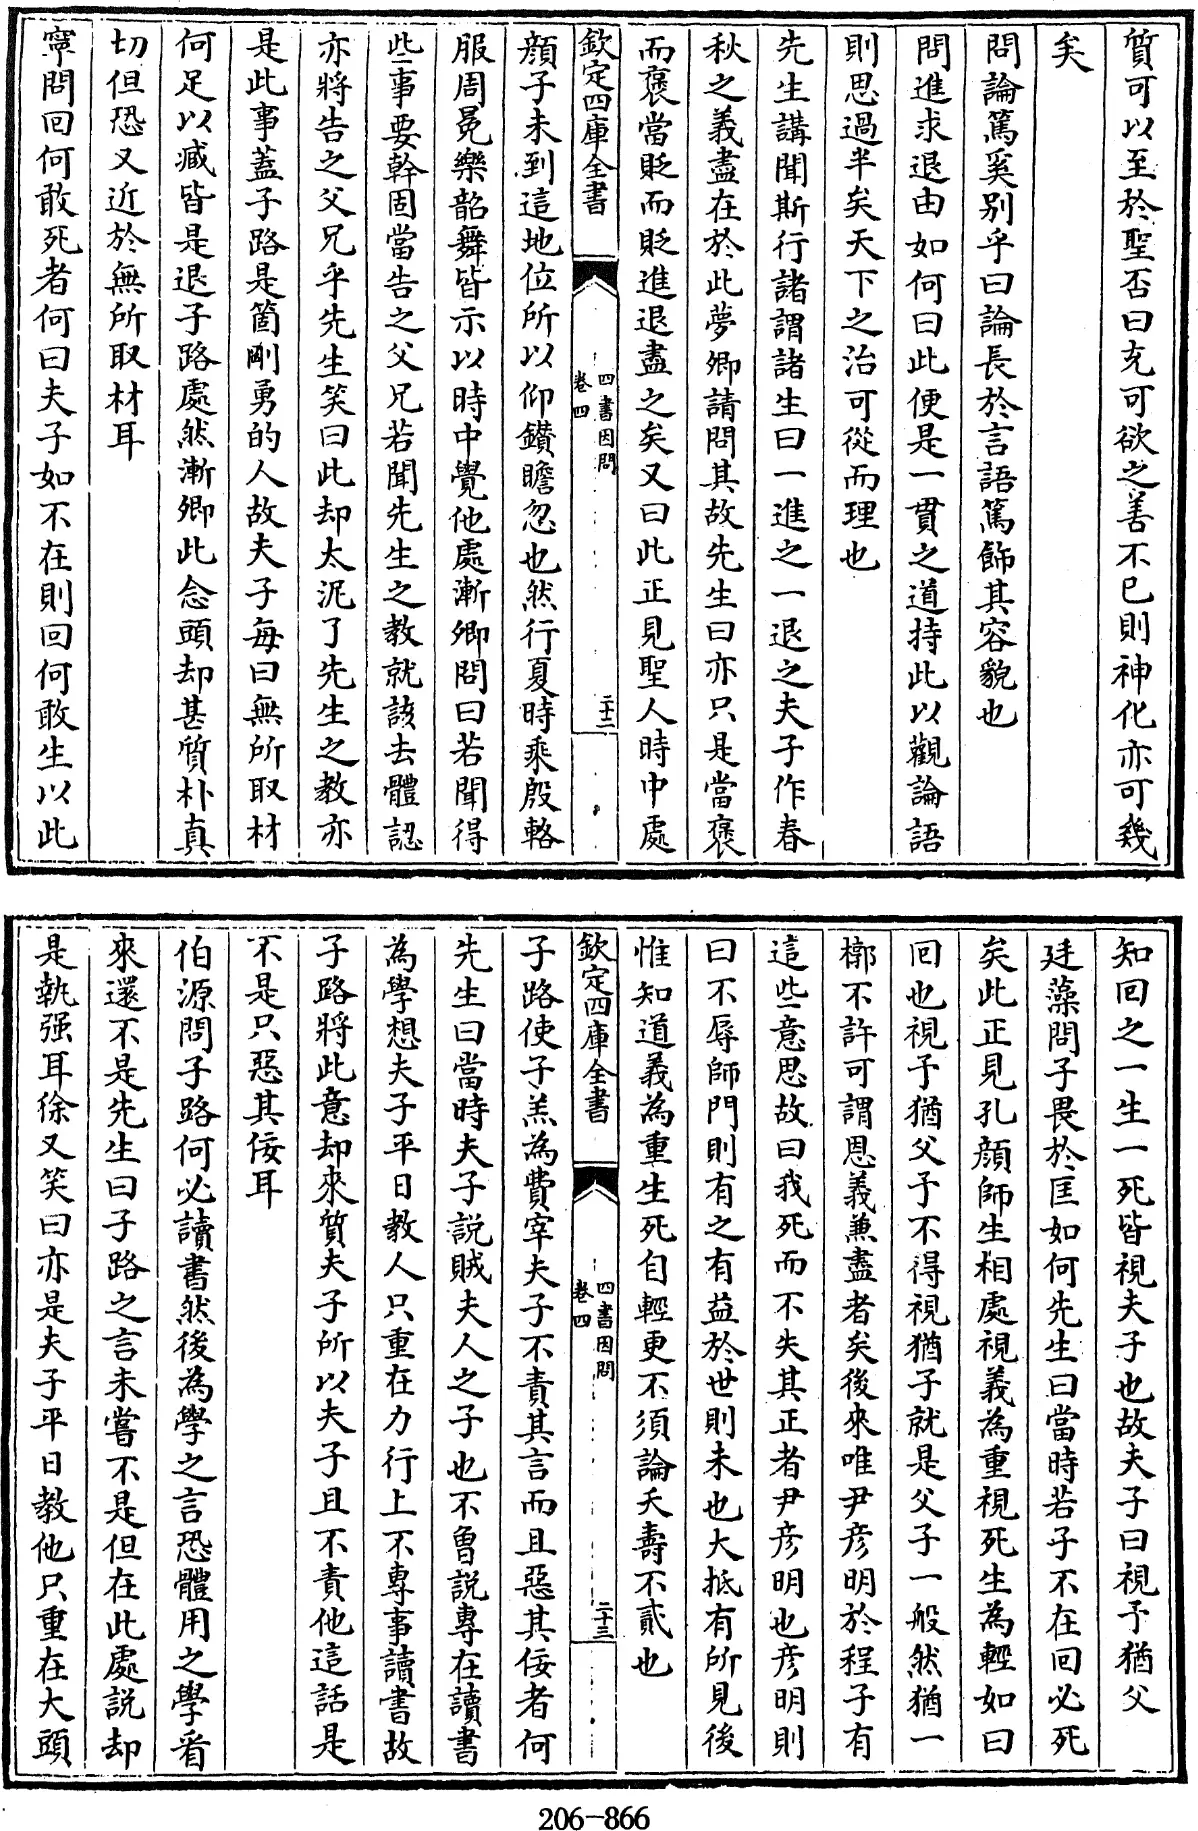 質可以至於聖否曰充可欲之善不已則神化亦可幾
矣
問論篤奚别乎曰論長於言語篤飾其容貌也
問進求退由如何曰此便是一貫之道持此以觀論語
則思過半矣天下之治可從而理也
先生講聞斯行諸謂諸生曰一進之一退之夫子作春
秋之義盡在於此夢卿請問其故先生曰亦只是當褒
而褒當貶而貶進退盡之矣又曰此正見聖人時中處
欽定四庫全書
四書因問
卷四
二十二
顔子未到這地位所以仰鑚瞻忽也然行夏時乘殷輅
服周冕樂韶舞皆示以時中覺他處漸卿問曰若聞得
些事要幹固當告之父兄若聞先生之教就該去體認
亦將告之父兄乎先生笑曰此却太泥了先生之教亦
是此事蓋子路是箇剛勇的人故夫子每曰無所取材
何足以臧皆是退子路處然漸卿此念頭却甚質朴真
切但恐又近於無所取材耳
寧問回何敢死者何曰夫子如不在則回何敢生以此
知回之一生一死皆視夫子也故夫子曰視予猶父
廷藻問子畏於匡如何先生曰當時若子不在回必死
矣此正見孔顔師生相處視義為重視死生為輕如曰
回也視予猶父予不得視猶子就是父子一般然猶一
槨不許可謂恩義兼盡者矣後來唯尹彦明於程子有
這些意思故曰我死而不失其正者尹彦明也彦明則
曰不辱師門則有之有益於世則未也大抵有所見後
惟知道義為重生死自輕更不須論夭壽不貳也
欽定四庫全書
四書因問
卷四
二十三
子路使子羔為費宰夫子不責其言而且惡其佞者何
先生曰當時夫子說賊夫人之子也不曾説專在讀書
為學想夫子平日教人只重在力行上不專事讀書故
子路將此意却來質夫子所以夫子且不責他這話是
不是只惡其佞耳
伯源問子路何必讀書然後為學之言恐體用之學看
來還不是先生曰子路之言未嘗不是但在此處説却
是執强耳徐又笑曰亦是夫子平日教他只重在大頭
206-866